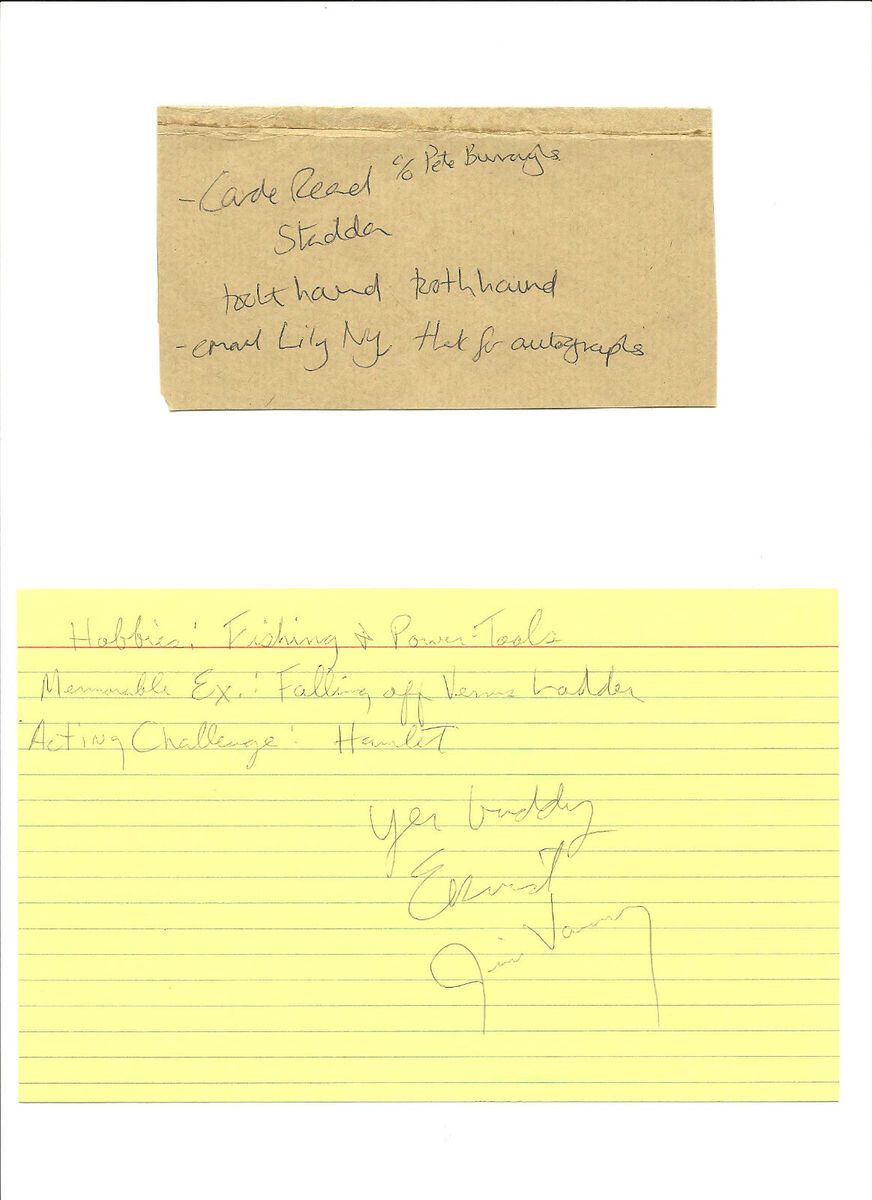 - Carole Read c/o Pete Burraghs
Staddon
hand
- email Lily Ny for autographs
Hobbies: Fishing & Power-Tools
Memorable Ex.: Falling off Verns Ladder
Acting Challenge: Hamlet
Yer buddy
Ernest
Jim Varney